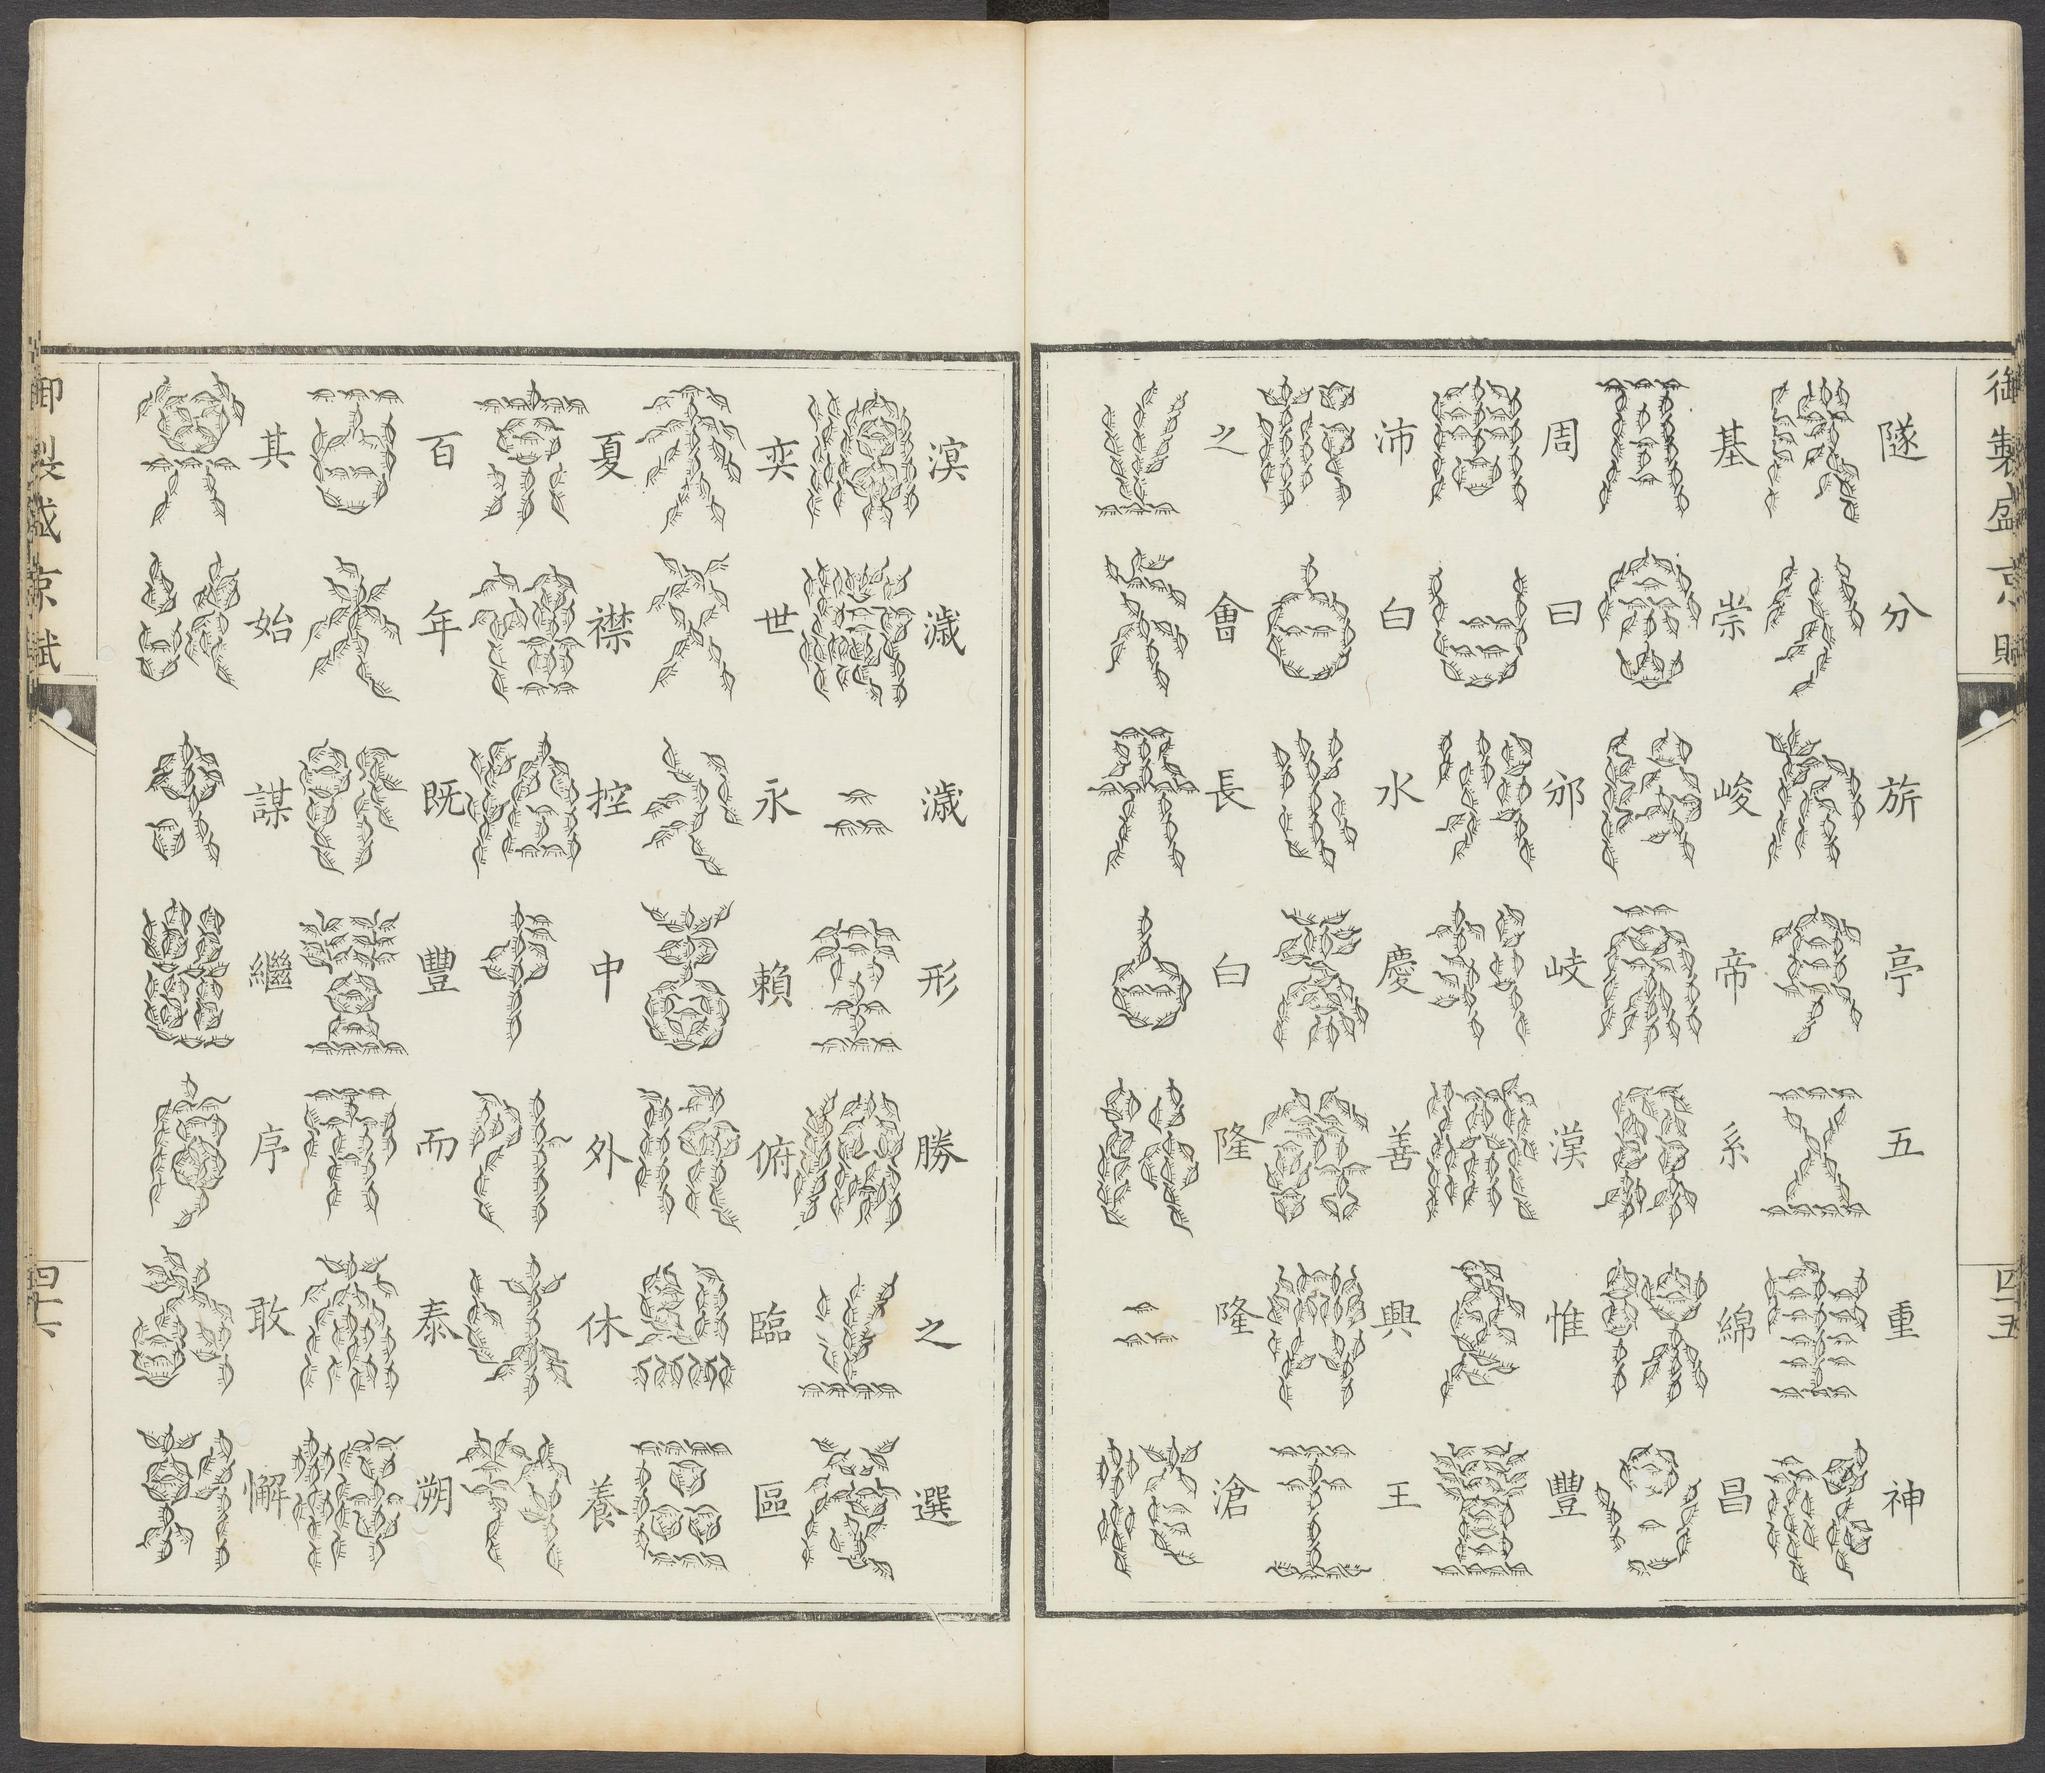 御製盛京賦
四五
隧分旂亭五重神
基崇峻帝系綿昌
周曰邠岐漢惟豐
沛白水慶善興王
之會長白隆隆滄
溟濊濊形勝之選
奕世永賴俯臨區
夏襟控中外休養
百年既豐而泰溯
其始謀繼序敢懈
御製盛京賦
四六